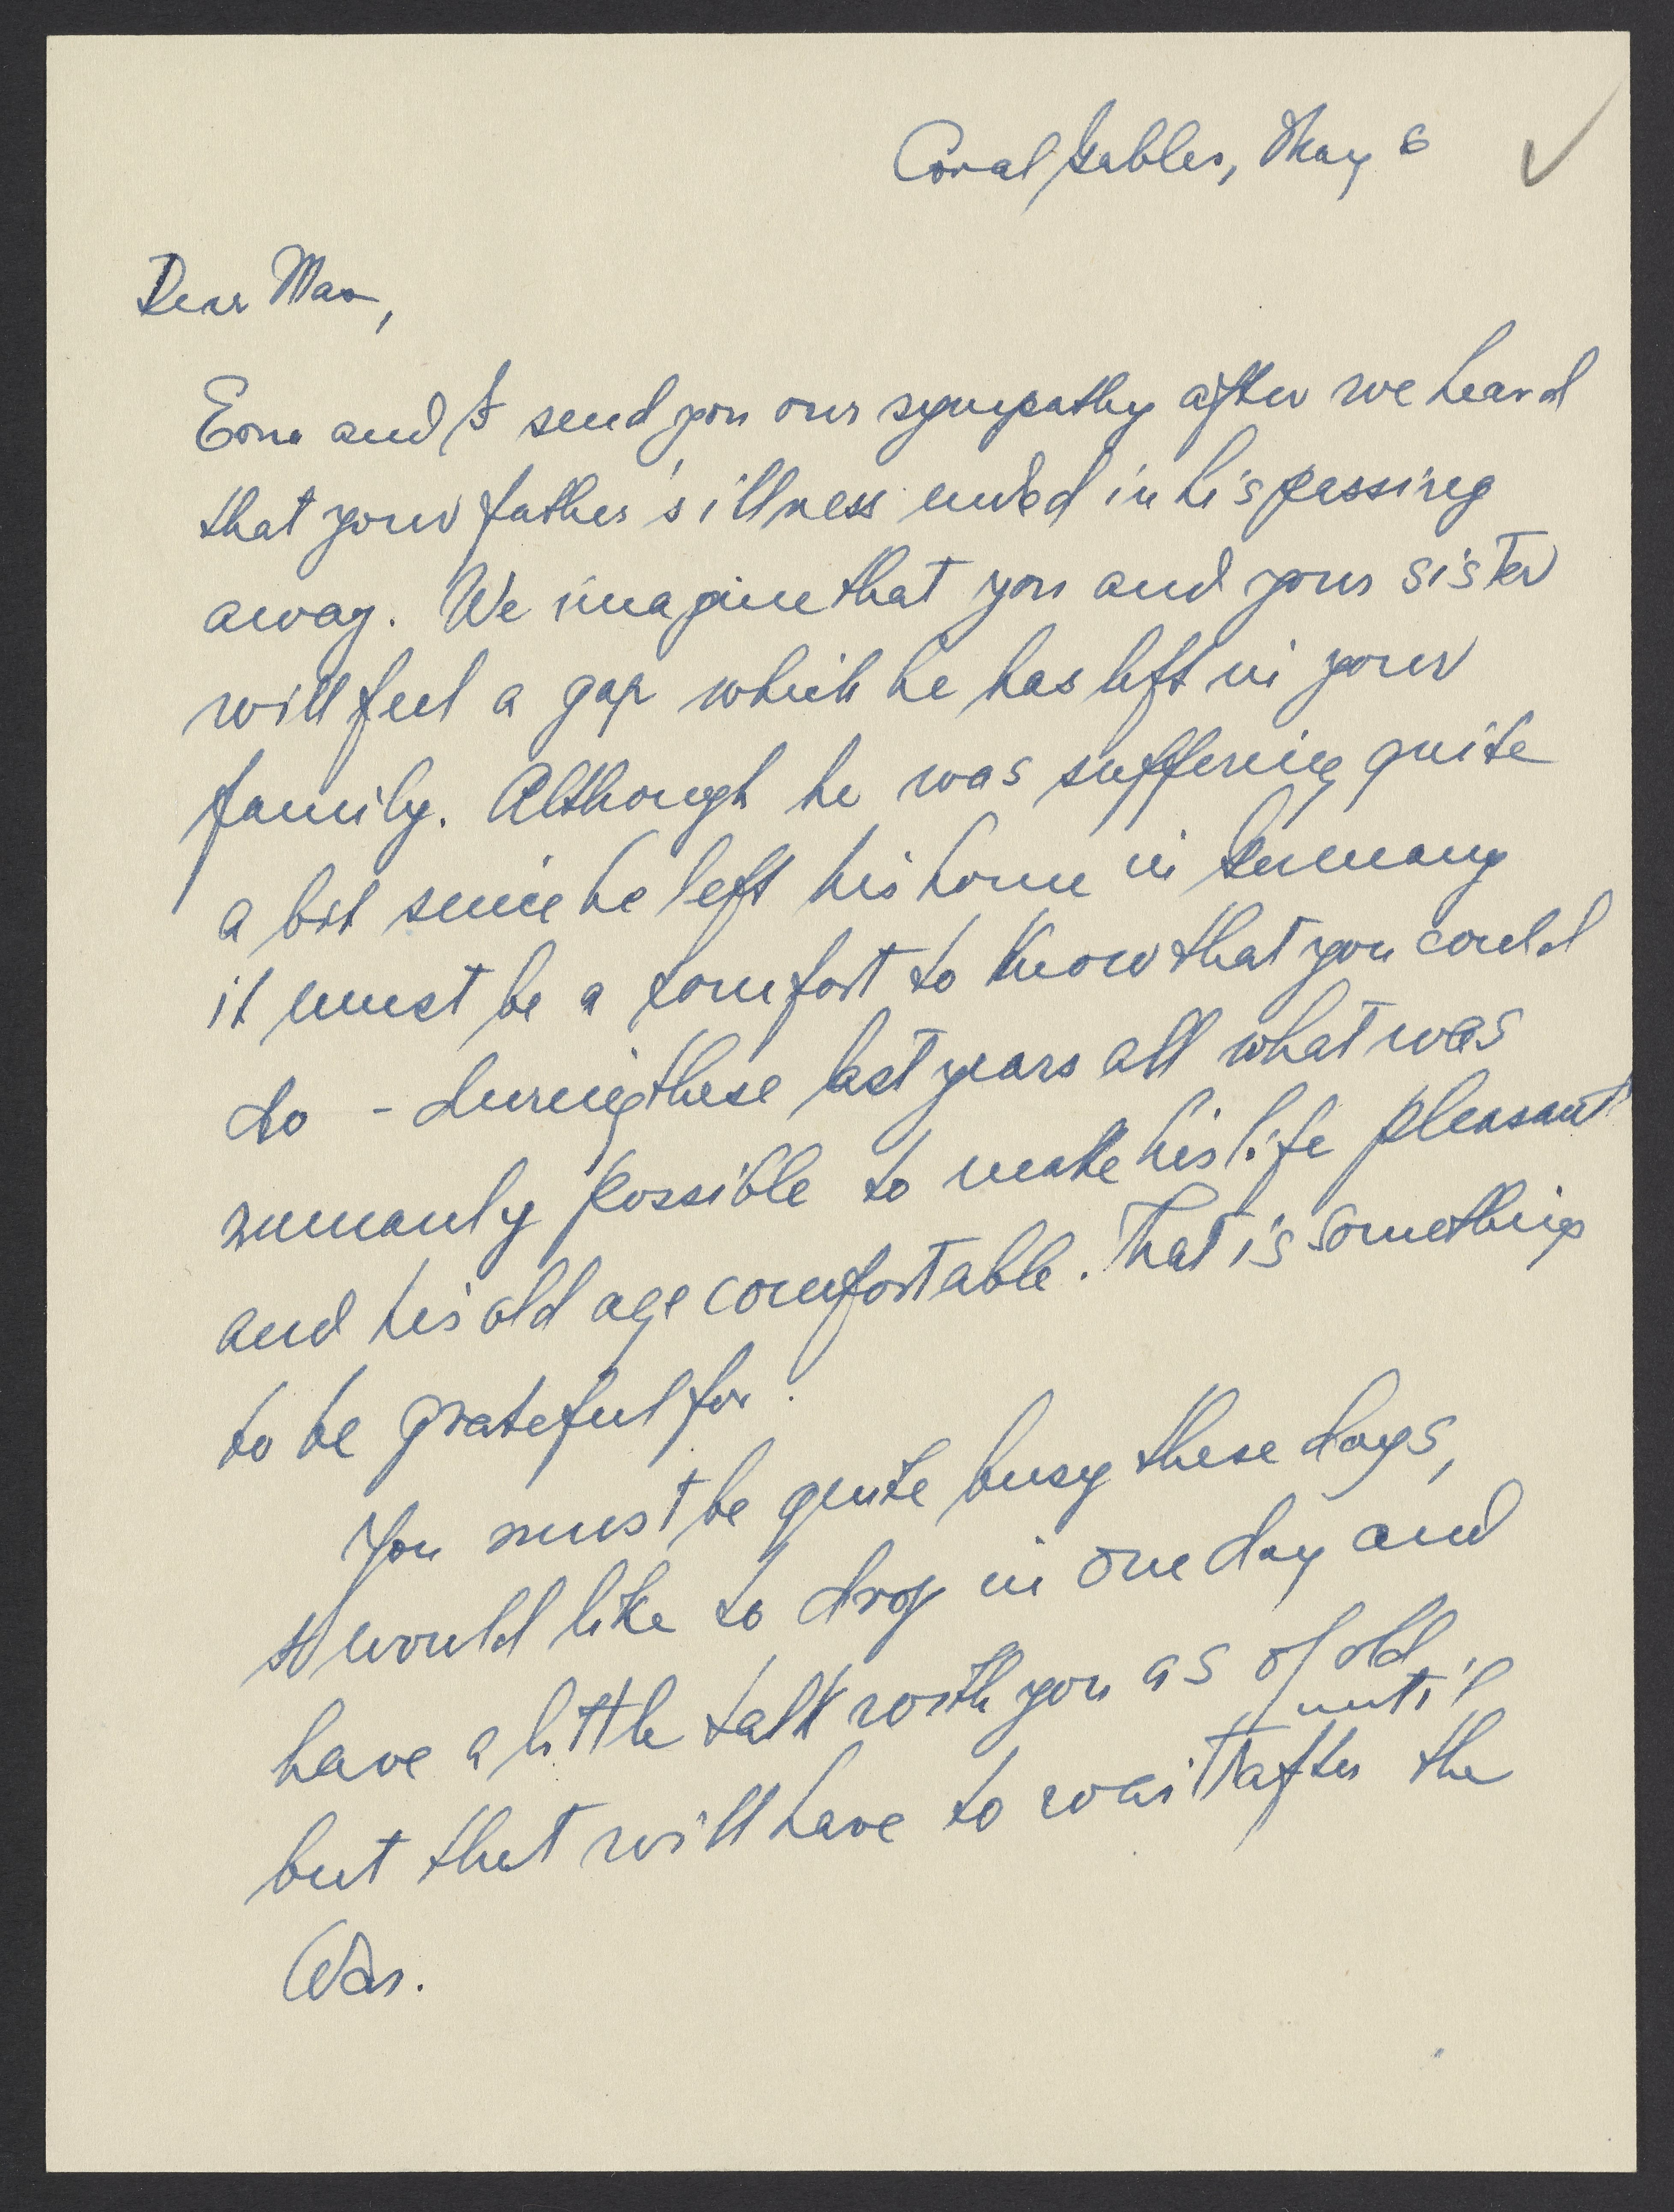 Coral Gables, May 6
Dear Max,
Erna and I send you our sympathy after we heard
that your father's illness ended in his passing
away. We imagine that you and your sister
will feel a gap which he has left in your
family. Although he was suffering quite
a bit since he left his home in Germany
it must be a comfort to know that you could
do - during these last years all what was
humanly possible to make his life pleasant
and his old age comfortable. That is something
to be grateful for.
You must be quite busy these days,
I would like to drop in one day and
have a little talk with you as of old
until
but that will have to wait after the
War.